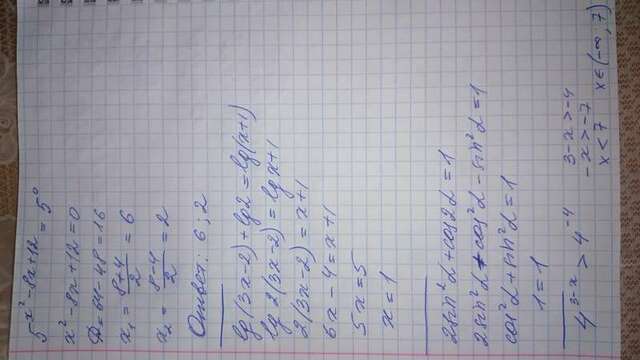 5^(x²-8x+12) = 5⁰
x²-8x+12=0
D=64-48=16
x₁ = (8+4)/2 = 6
x₂ = (8-4)/2 = 2
Ответ: 6; 2
lg(3x-2)+lg2=lg(x+1)
lg 2(3x-2) = lg x+1
2(3x-2) = x+1
6x-4=x+1
5x=5
x=1
2sin²α+cos2α=1
2sin²α+cos²α-sin²α=1
cos²α+sin²α=1
1=1
4^(3-x) > 4^(-4)
3-x>-4
-x>-7
x<7 x∈(-∞; 7)